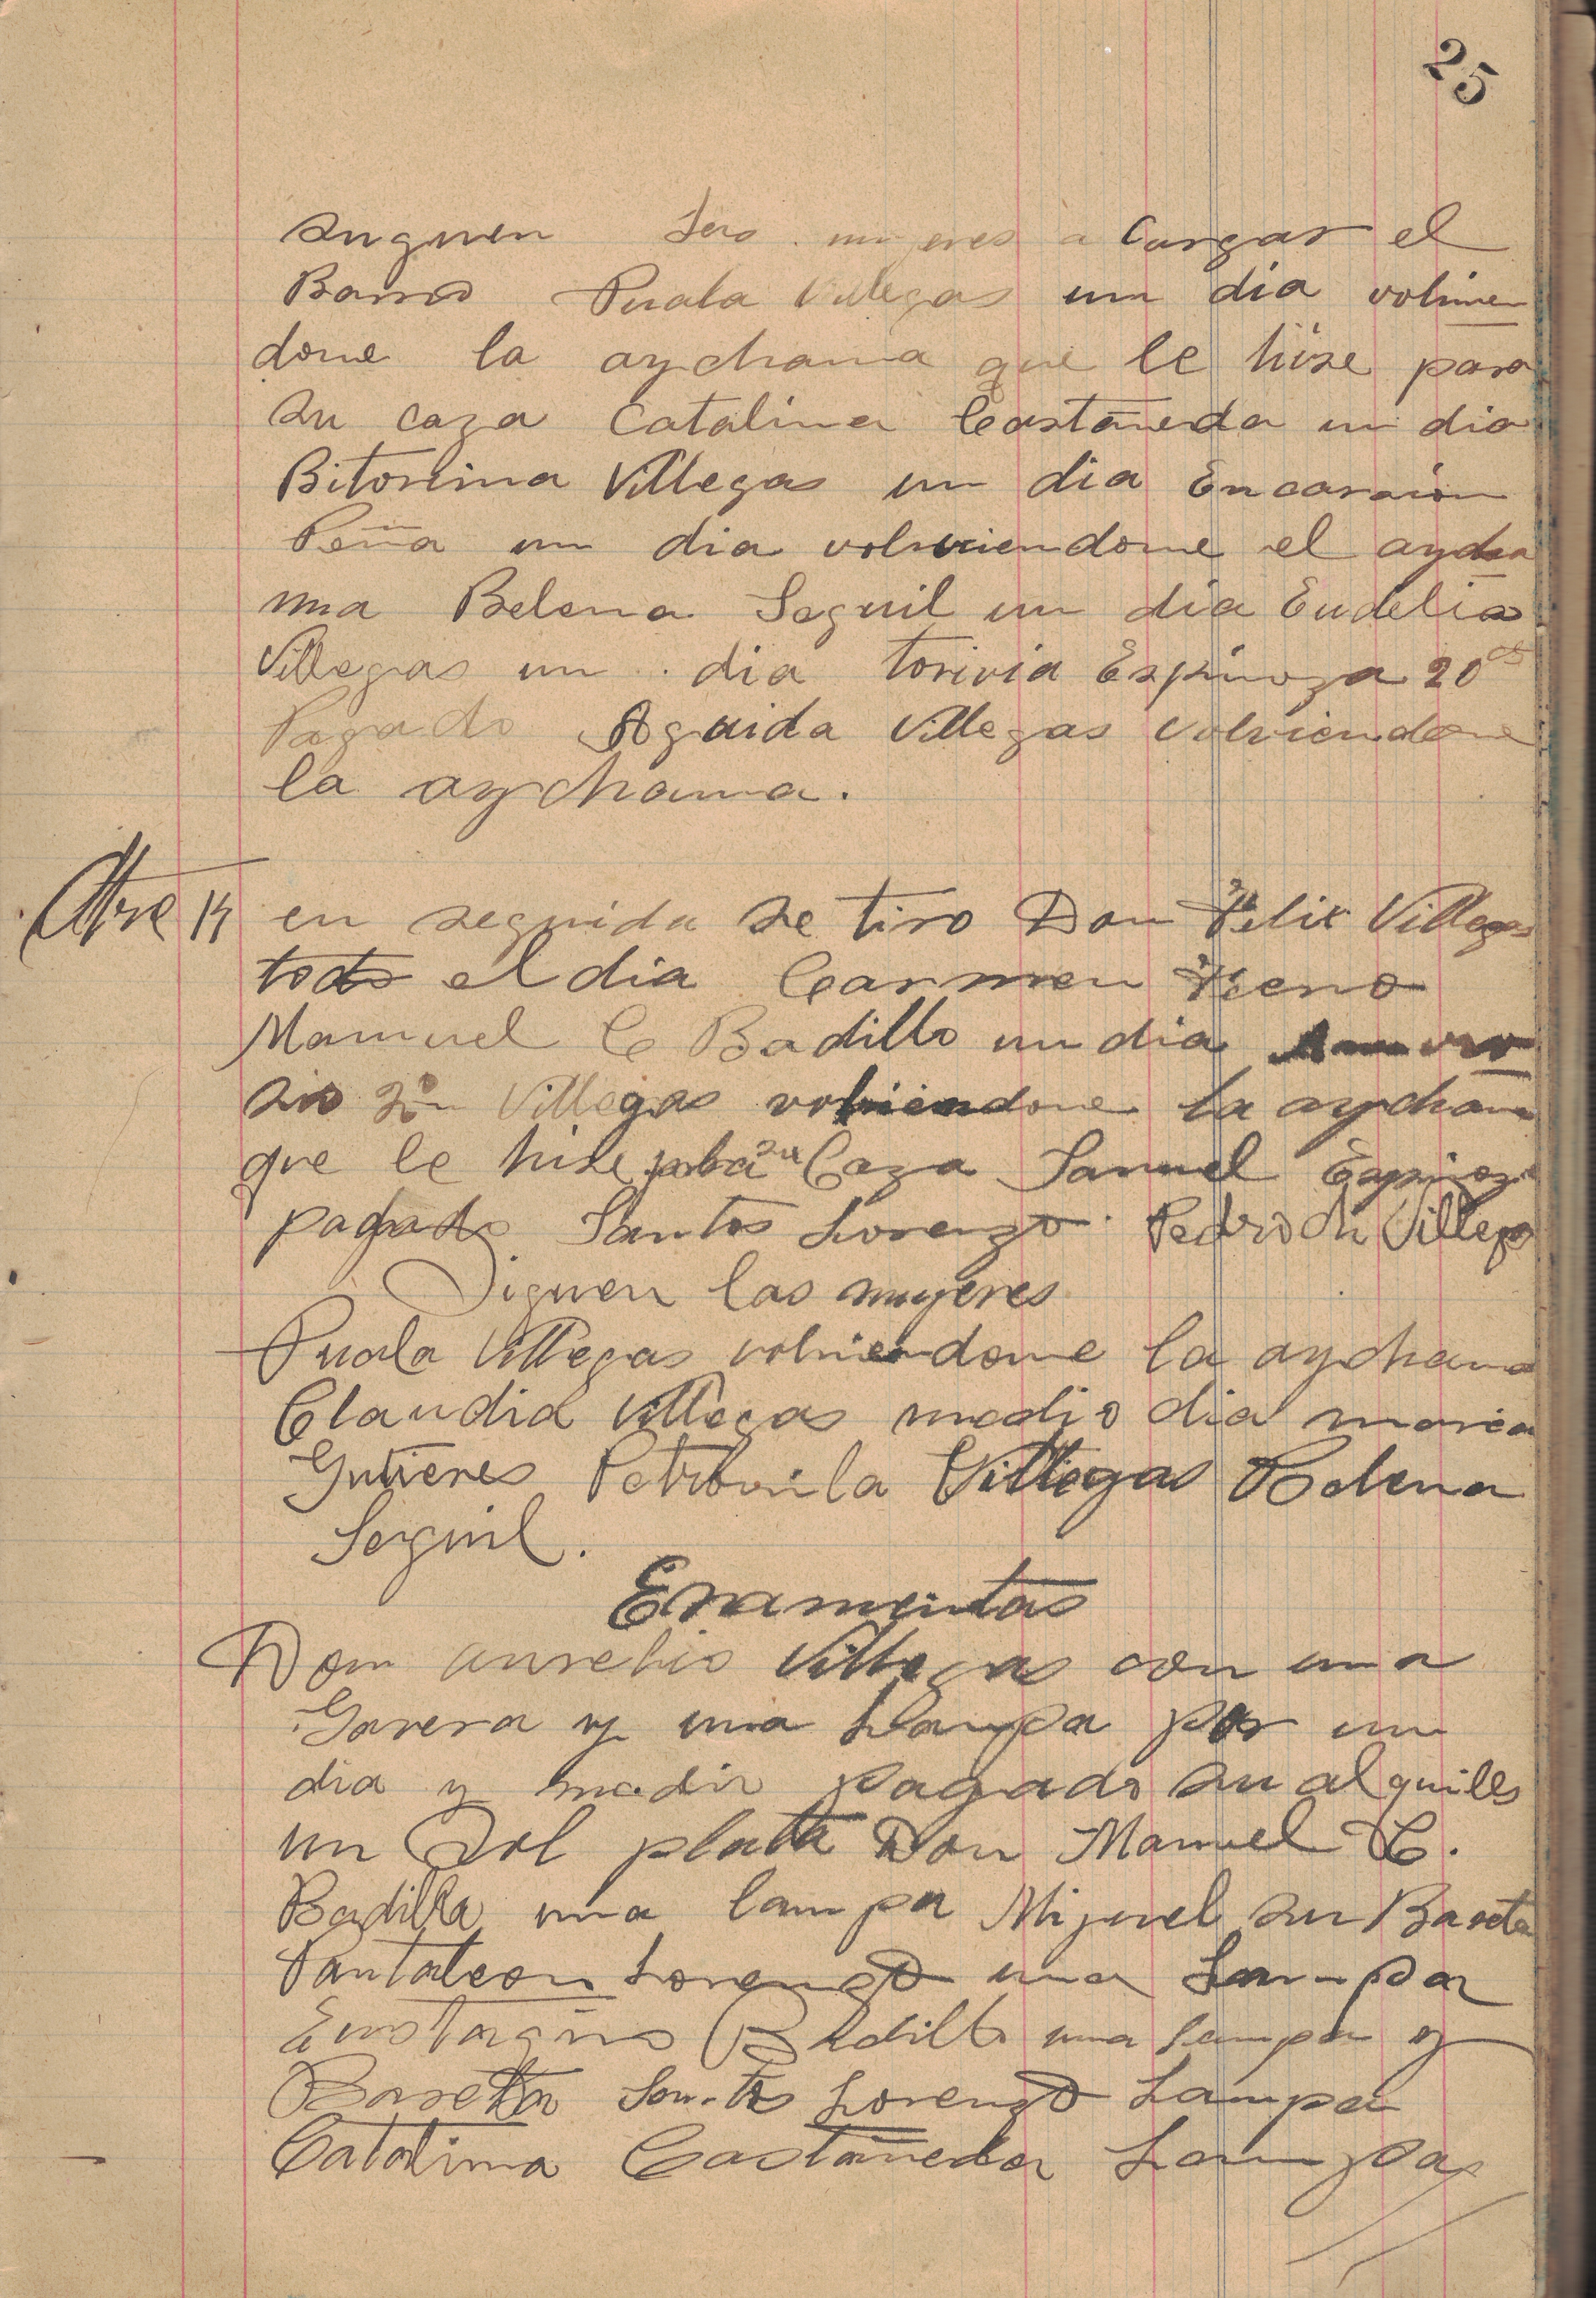 25
Siguen las mujeres a Cargar el
Barro Puala Villegas un dia volvien
dome la aychama que le hise para
su caza Catalina Castañeda un dia
Bitorina Villegas un dia Encarnion
Peña un dia volviendome el aycha
ma Belena Seguil un dia Eudelia
Villegas un dia torivia Espinoza 20
Pagado Aguida Villegas volviendome
la aychama.
14 en seguida se tiro Don Felix Villegas
todo el dia Carmen
Manuel C Badillo un dia
sio 2º Villegas volviendome la aychama
que le hise para su Caza Samuel Espinoza
pagado Santos Lorenzo Pedro Ch Villegas
Siguen las mujeres
Puala Villegas volviendome la aychama
Claudia Villegas medio dia maria
Gutieres Petronila Villegas Belena
Seguil.
Eramientas
Don aurelio Villegas con una
Gavera y una Lampa por un
dia y medio pagado su alquiles
un Sol plata Don Manuel C.
Badilla una lampa Miguel su Bareta
Pantaleon Lorenzo una Lampa
Eustaqiño Badillo una lampa y
Baretta Santos Lorenzo Lampa
Catalina Castañeda Lampa